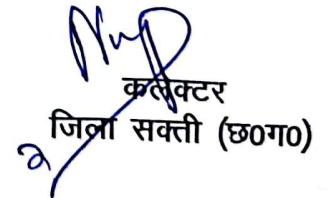 कलेक्टर
जिला सक्ती (छ0ग0)